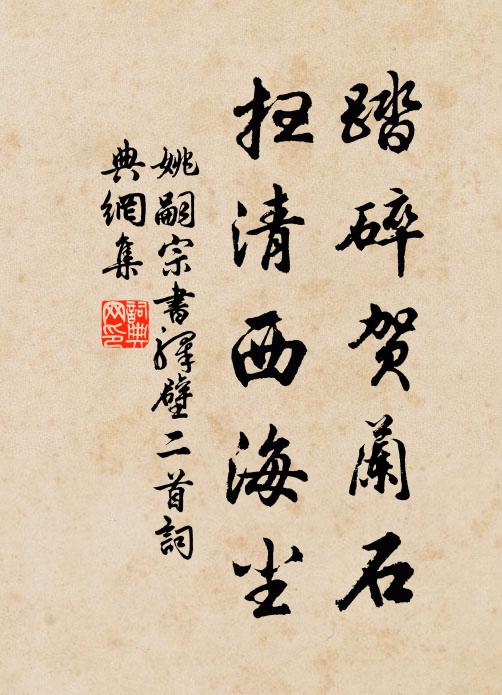 踏碎贺蘭石
扫清西海尘
姚嗣宗書驛壁二首詞
典網集
詞典
网印